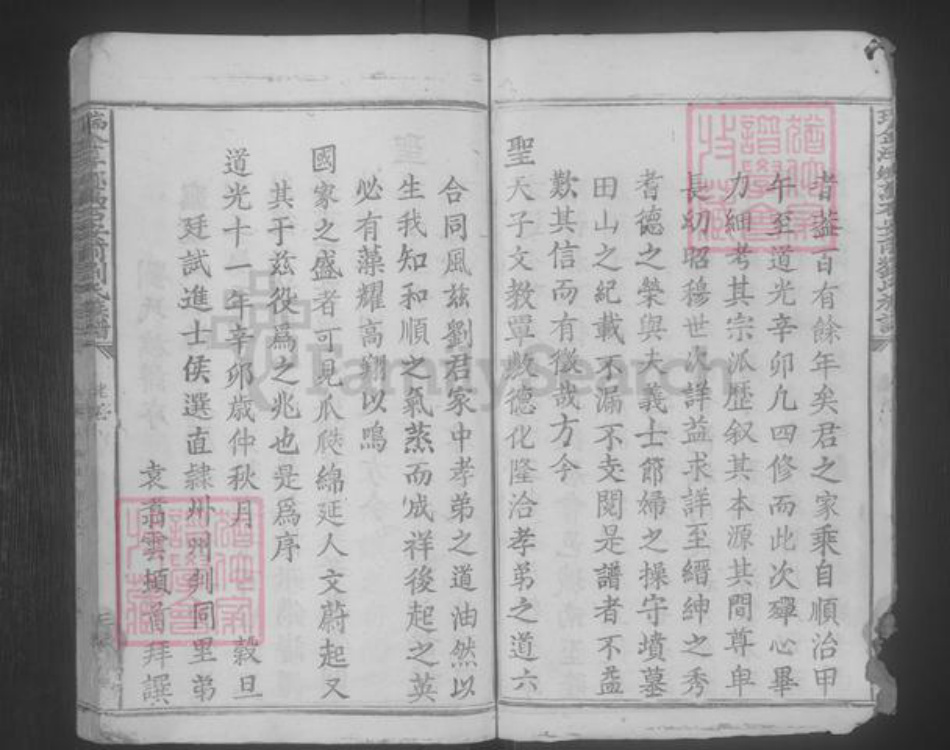 者蓋百有餘年矣君之家乘自順治甲
午至道光辛卯凡四修而此次殫心畢
力細考其宗派歷叙其本源其間尊卑
長幼昭穆世次詳益求詳至縉紳之秀
耆德之榮與夫義士節婦之操守墳墓
田山之紀載不漏不支閱是譜者不益
歎其信而有徵哉方今
聖天子文教覃敷德化隆洽孝弟之道六
合同風茲劉君家中孝弟之道油然以
生我知和順之氣蒸而成祥後起之英
必有藻耀高翔以鳴
國家之盛者可見瓜瓞綿延人文蔚起又
其于茲役爲之兆也是爲序
道光十一年辛卯歲仲秋月 穀旦
廷試進士侯選直隸州州判同里弟
袁翥雲頓首拜譔
FamilySearch